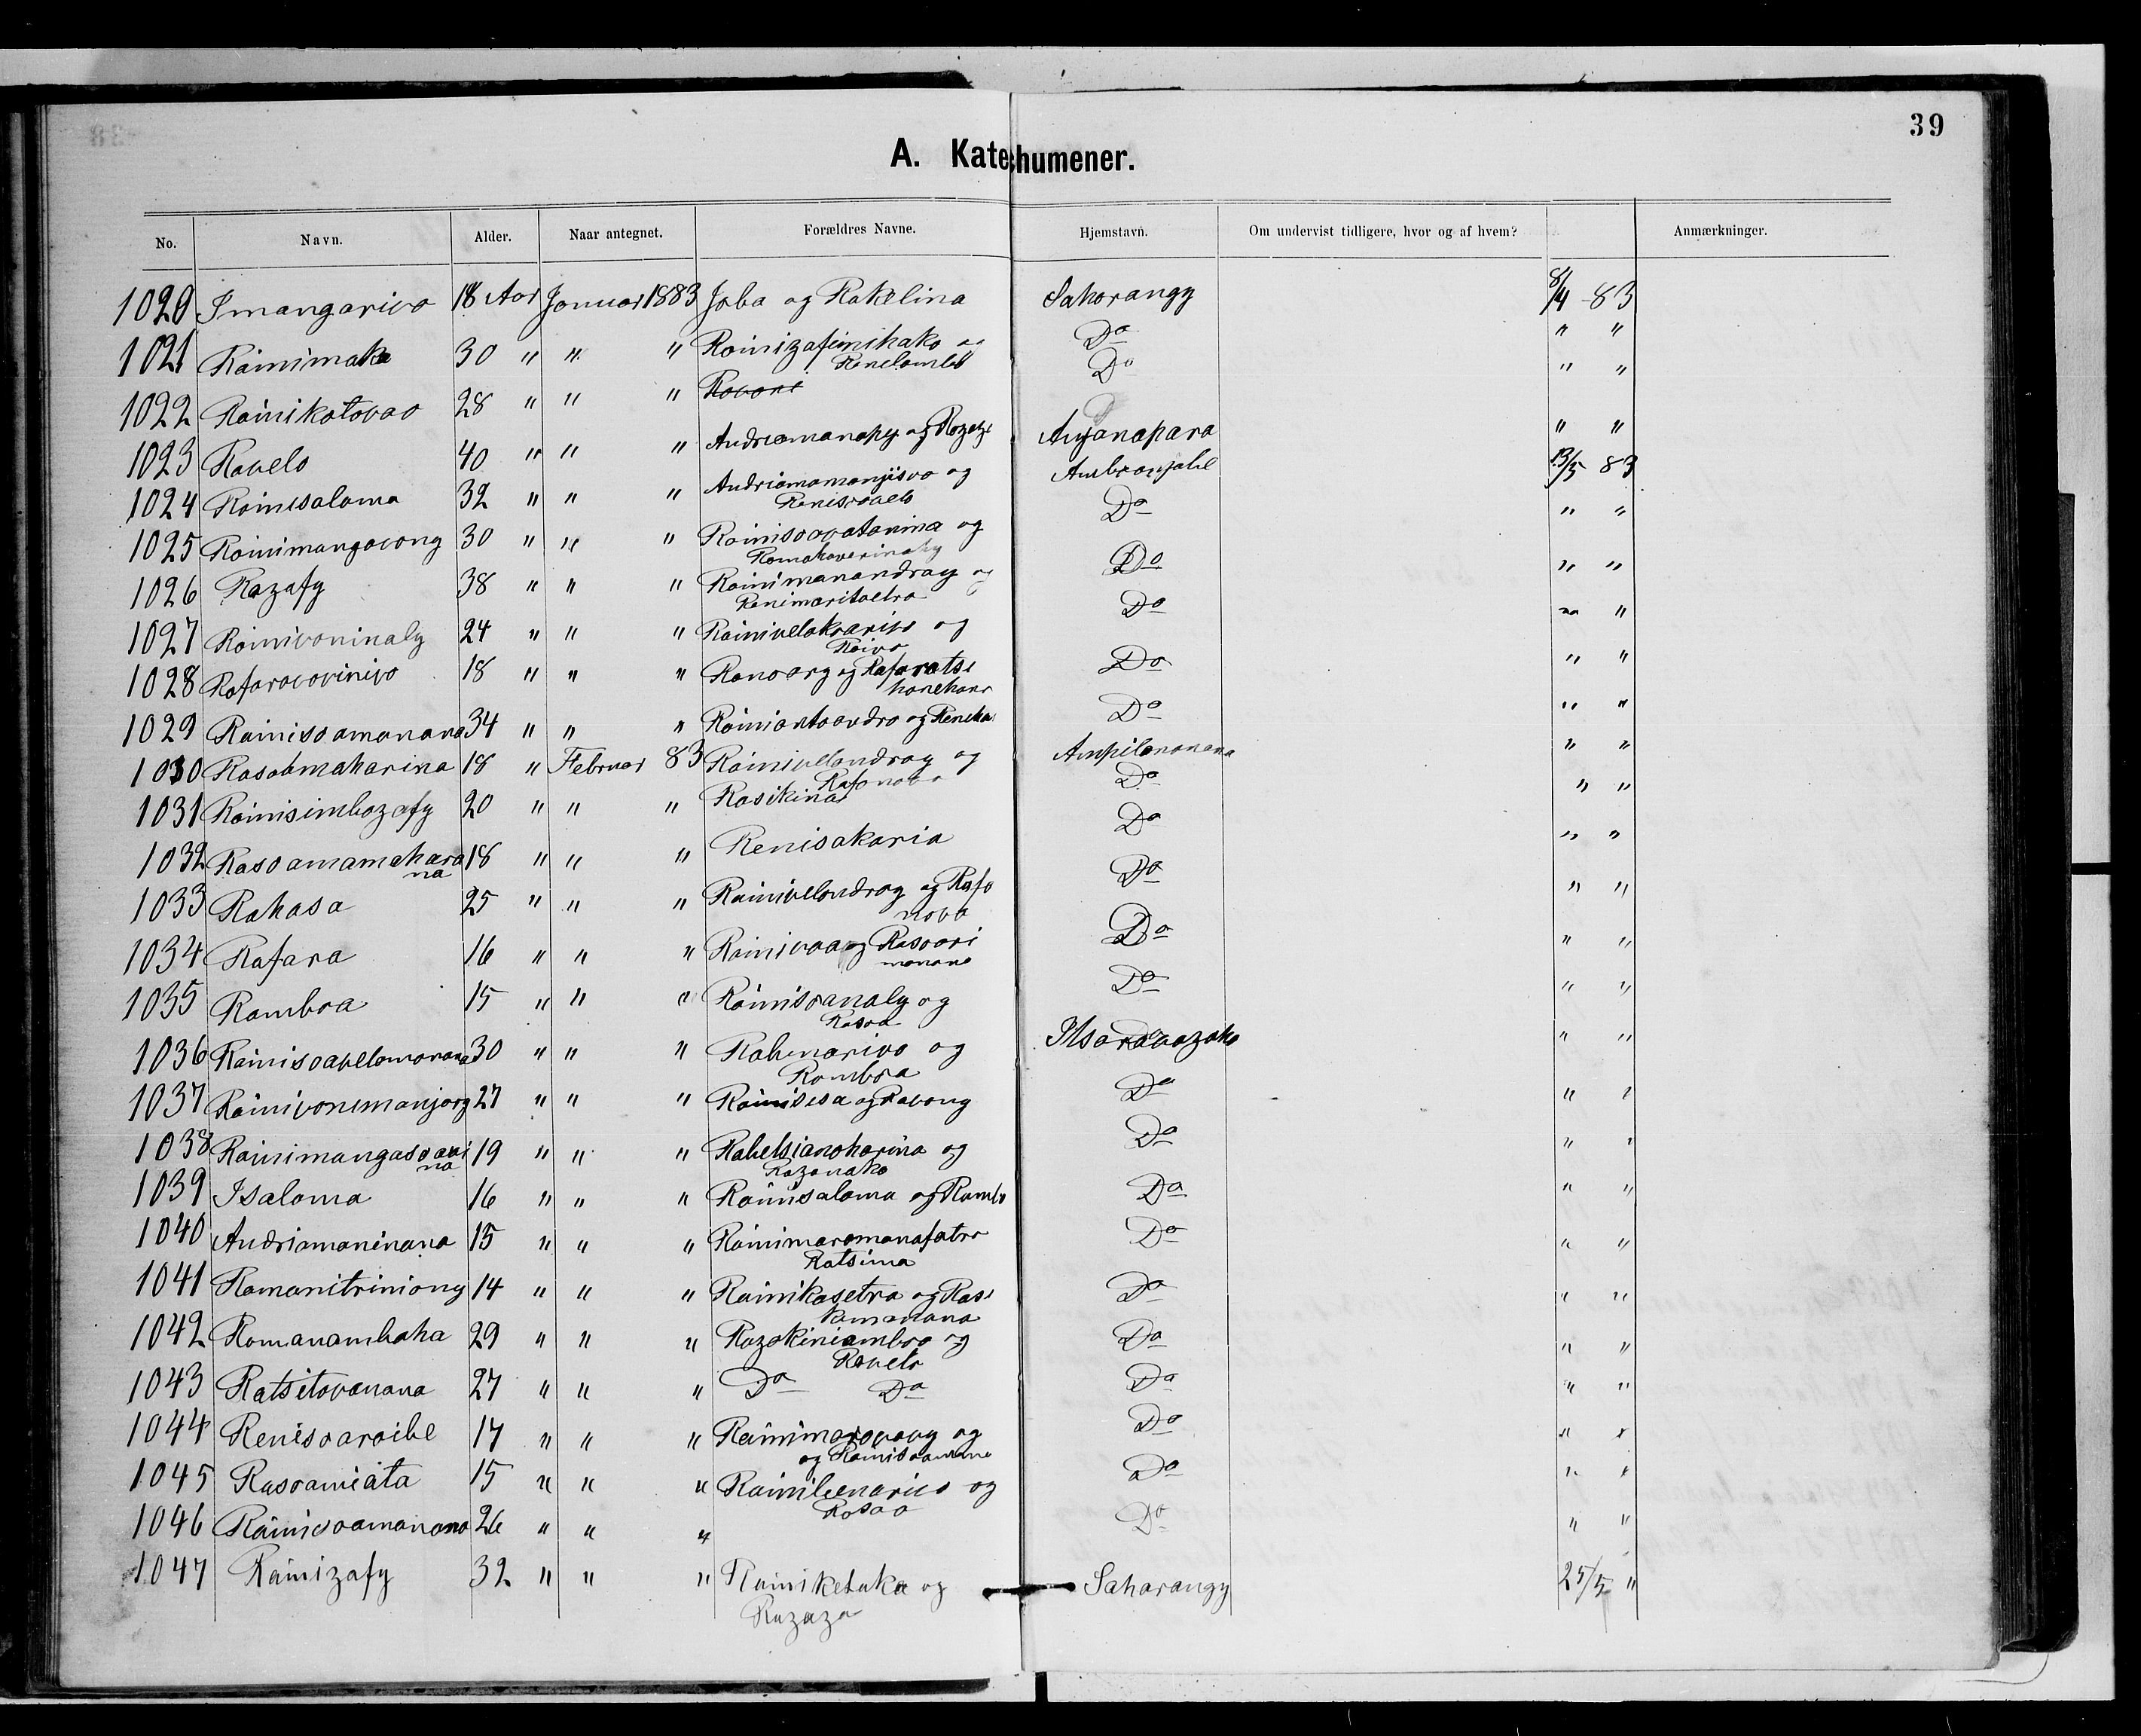 39
A. Katechumener.
No. Navn. Alder. Naar antegnet. Forældres Navne. Hjemstavn. Om undervist tidligere, hvor og af hvem? Anmærkninger.
1020 Imangarivo 18 Aar Januar 1883 Joba og Rakelina Saharangy 8/4 83
1021 Rainimaka 30 " " " Rainizafimihako og Do " "
Renelambo
1022 Rainikotovao 28 " " " Ravone Do " "
1023 Ravelo 40 " " " Andriamanapy og Razaza Anjanapara " "
1024 Rainisaloma 32 " " " Andriamamonjisoa og Ambranjabe 13/5 83
Renisoaelo
1025 Rainimangavong 30 " " " Rainisoavatanina og Do " "
Ramahaverinaly
1026 Razafy 38 " " " Rainimanandray og Do " "
Renimaritoetra
1027 Rainivoninaly 24 " " " Rainivelokarivo og Do " "
Raivo
1028 Rafaravavinivo 18 " " " Ranoary og Rafaratsi Do " "
hanehana
1029 Rainisoamanana 34 " " " Rainiantoandro og Reneka Do " "
1030 Rasoamaharina 18 " Februar 83 Rainivelondray og Ampilananana " "
Rafonova
1031 Rainisimbozafy 20 " " " Rasikina Do " "
1032 Rasoamamahara 18 " " " Renisakaria Do " "
na
1033 Rahasa 25 " " " Rainivelondray og Rafo Do " "
nova
1034 Rafara 16 " " " Rainivoa og Rasoari Do " "
manana
1035 Ramboa 15 " " " Rainisoanaly og Do " "
Rasoa
1036 Rainisoavelomanana 30 " " " Rabenarivo og Itsaravazaha " "
Ramboa
1037 Rainivonimanjary 27 " " " Rainisesa og Ravony Do " "
1038 Rainimangasoavi 19 " " " Rabetsianoharina og Do " "
na Razanako
1039 Isaloma 16 " " " Rainisaloma og Rambo Do " "
1040 Andriamaninana 15 " " " Rainimaromanafatra Do " "
Ratsima
1041 Ramanitriniony 14 " " " Rainikasetra og Rasi Do " "
kamanana
1042 Ramanambaha 29 " " " Razakiniamboa og Do " "
Ravelo
1043 Ratsitovanana 27 " " " Do Do Do " "
1044 Renisoaroibe 17 " " " Rainimarovavy og Do " "
og Rainisoamana
1045 Rasoamiata 15 " " " Rainibenarivo og Do " "
Rasoa
1046 Rainisoamanana 26 " " " Do " "
1047 Rainizafy 32 " " " Rainiketaka og Saharangy 25/5 "
Razaza